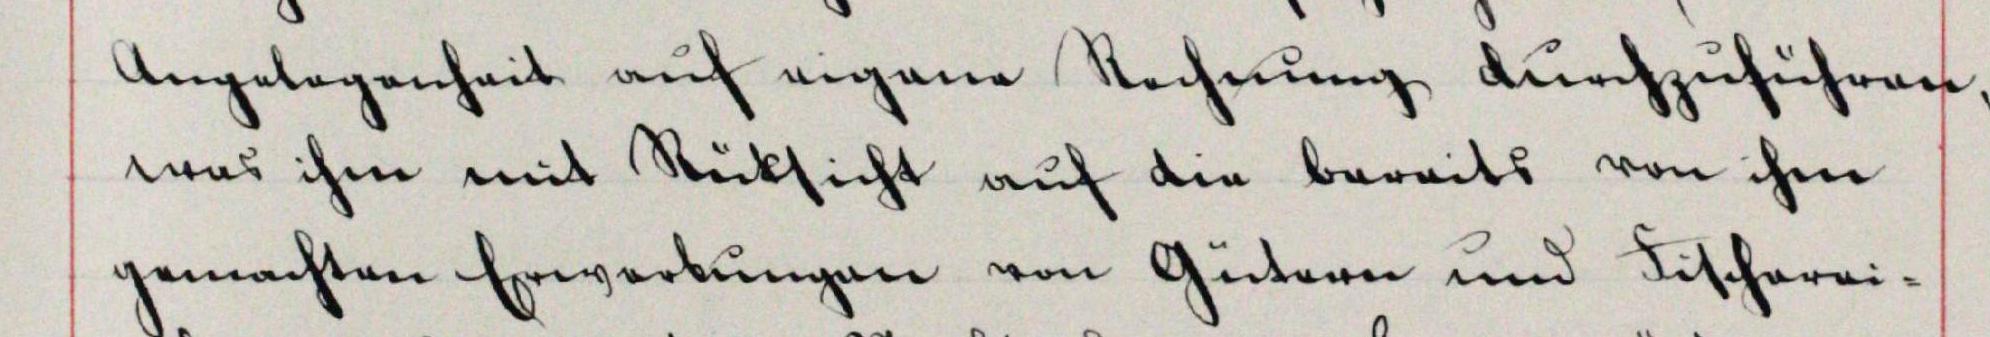 Angelegenheit auf eigene Rechnung durchzuführen,
was ihm mit Rüksicht auf die bereits von ihm
gemachten Erwerbungen von Gütern und Fischerei-